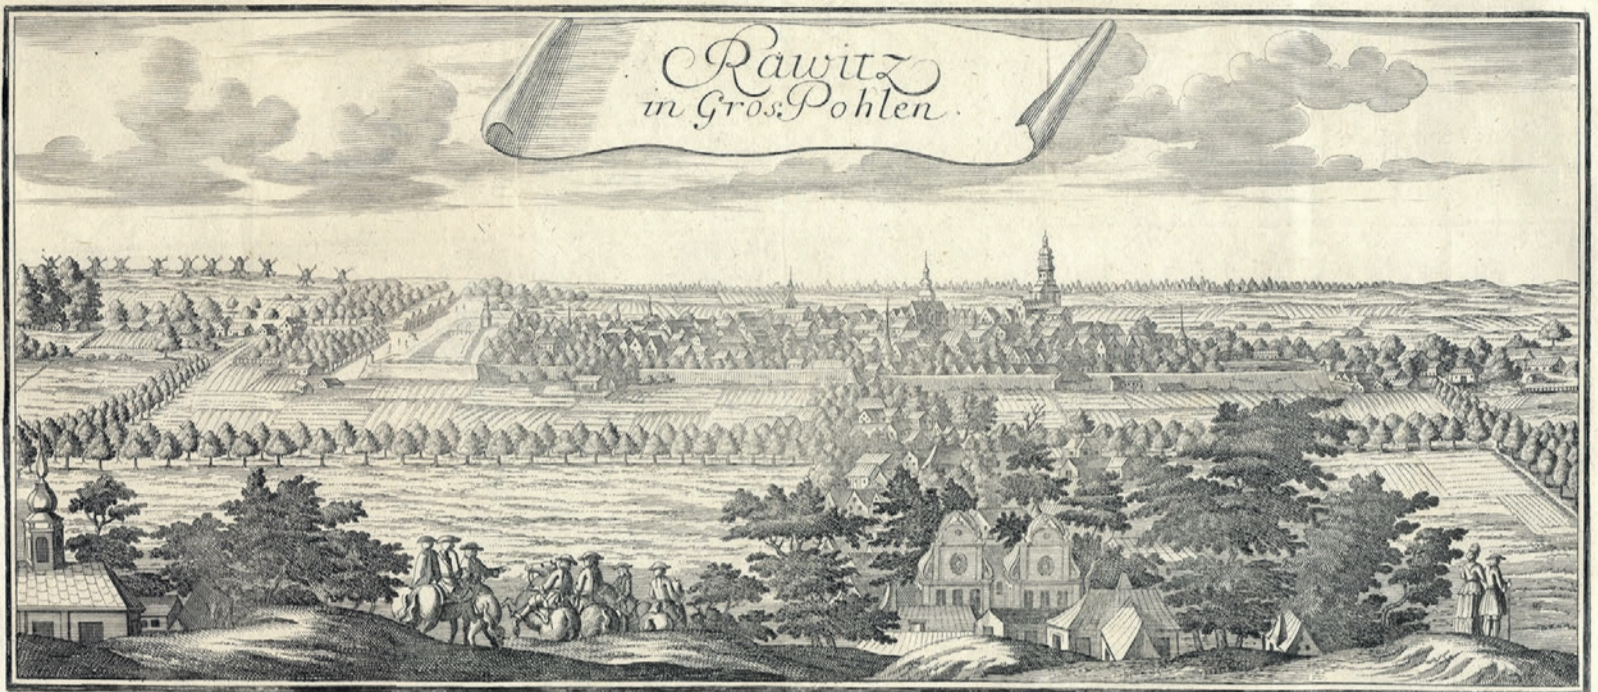 Rawitz
in Gros. Pohlen.